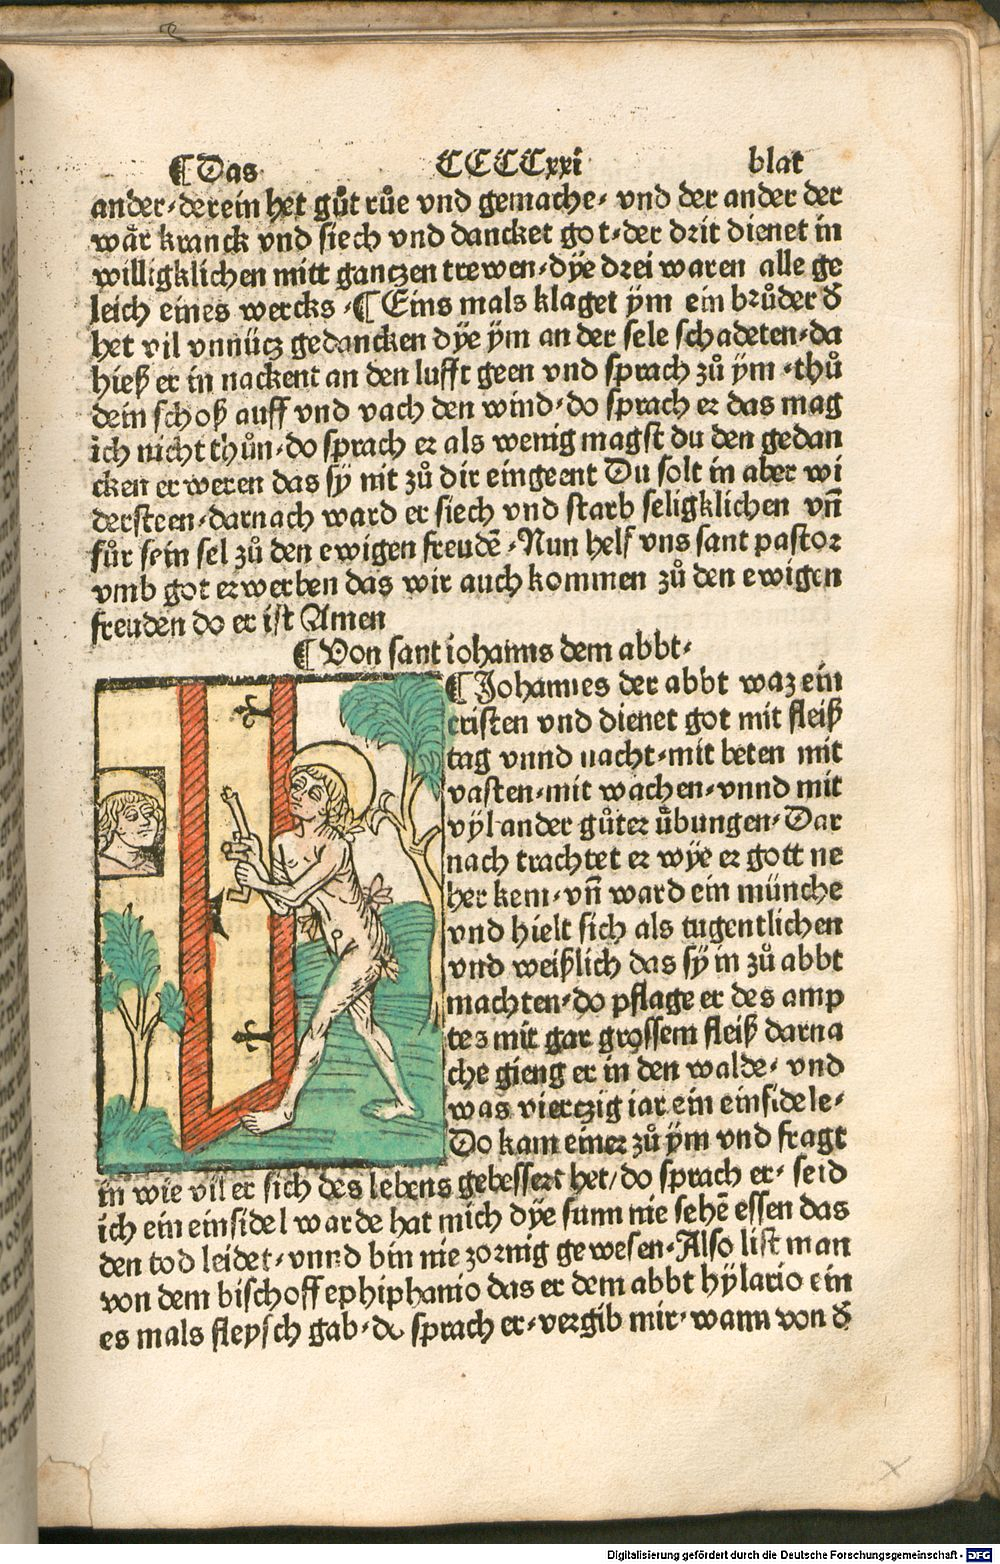 ¶Das CCCCxxi blat
ander·der ein het gůt růe vnd gemache· vnd der ander der
wår kranck vnd siech vnd dancket got·der drit dienet in
willigklichen mitt gantzen trewen·dÿe drei waren alle ge
leich eines wercks ·¶Eins mals klaget ÿm ein brůder đ
het vil vnnücz gedancken dÿe ÿm an der sele schadeten·da
hieß er in nackent an den lufft geen vnd sprach zů ÿm ·thů
dein schoß auff vnd vach den wind·do sprach er das mag
ich nicht thůn·do sprach er als wenig magst du den gedan
cken erweren das sÿ nit zů dir eingeent Du solt in aber wi
dersteen·darnach ward er siech vnd starb seligklichen vn̄
fůr sein sel zů den ewigen freudē ·Nun helf vns sant pastor
vmb got erwerben das wir auch kommen zů den ewigen
freuden do er ist Amen
¶Von sant iohanns dem abbt·
¶Johannes der abbt waz ein
cristen vnd dienet got mit fleiß
tag vnnd nacht·mit beten mit
vasten·mit wachen·vnnd mit
vÿl ander gůter ůbungen·Dar
nach trachtet er wÿe er gott ne
her kem·vn̄ ward ein münche
vnd hielt sich als tugentlichen
vnd weißlich das sÿ in zů abbt
machten·do pflage er des amp
tes mit gar grossem fleiß darna
che gieng er in den walde· vnd
was vierczig iar ein einsidele·
Do kam einer zů ÿm vnd fragt
in wie vil er sich des lebens gebessert het/do sprach er· seid
ich ein einsidel warde hat mich dÿe sunn nie sehē essen das
den tod leidet·vnnd bin nie zornig gewesen·Also list man
von dem bischoff ephiphanio das er dem abbt hÿlario ein
es mals fleysch gab·do sprach er·vergib mir·wann von đ
Digitalisierung gefördert durch die Deutsche Forschungsgemeinschaft - DFG